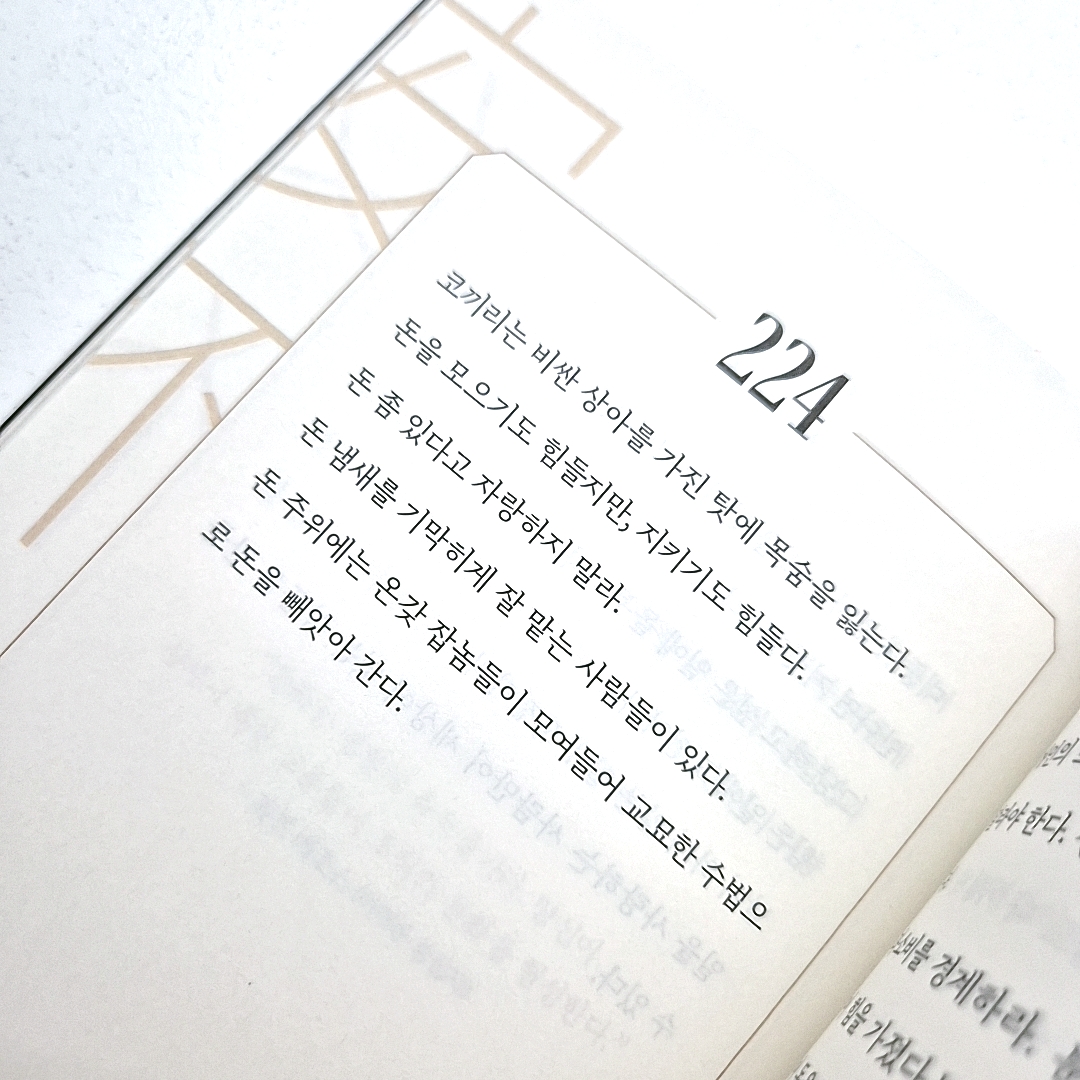 224
코끼리는 비싼 상아를 가진 탓에 목숨을 잃는다.
돈을 모으기도 힘들지만, 지키기도 힘들다.
돈 좀 있다고 자랑하지 말라.
돈 냄새를 기막히게 잘 맡는 사람들이 있다.
돈 주위에는 온갖 잡놈들이 모여들어 교묘한 수법으
로 돈을 빼앗아 간다.
한다.
경계하라.
가졌다